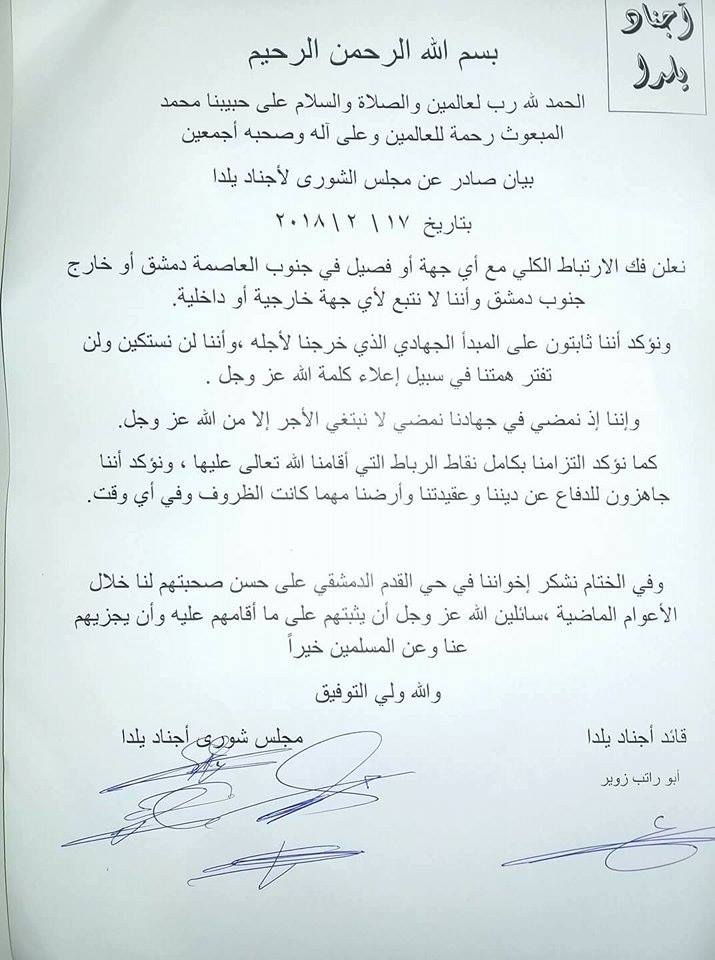 أجناد
يلدا
بسم الله الرحمن الرحيم
الحمد لله رب لعالمين والصلاة والسلام على حبيبنا محمد
المبعوث رحمة للعالمين وعلى آله وصحبه أجمعين
بيان صادر عن مجلس الشورى لأجناد يلدا
بتاريخ ١٧ / ٢ / ٢٠١٨
نعلن فك الارتباط الكلي مع أي جهة أو فصيل في جنوب العاصمة دمشق أو خارج
جنوب دمشق وأننا لا نتبع لأي جهة خارجية أو داخلية.
ونؤكد أننا ثابتون على المبدأ الجهادي الذي خرجنا لأجله ،وأننا لن نستكين ولن
تفتر همتنا في سبيل إعلاء كلمة الله عز وجل .
وإننا إذ نمضي في جهادنا نمضي لا نبتغي الأجر إلا من الله عز وجل.
كما نؤكد التزامنا بكامل نقاط الرباط التي أقامنا الله تعالى عليها ، ونؤكد أننا
جاهزون للدفاع عن ديننا وعقيدتنا وأرضنا مهما كانت الظروف وفي أي وقت.
وفي الختام نشكر إخواننا في حي القدم الدمشقي على حسن صحبتهم لنا خلال
الأعوام الماضية ،سائلين الله عز وجل أن يثبتهم على ما أقامهم عليه وأن يجزيهم
عنا وعن المسلمين خيراً
والله ولي التوفيق
قائد أجناد يلدا
مجلس شورى أجناد يلدا
أبو راتب زوير